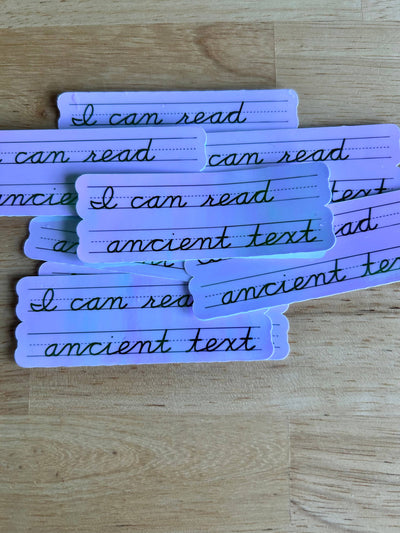 I can read
can read
ancient
can read
text
I can read
ancient text
ancient
I can read
ancient text